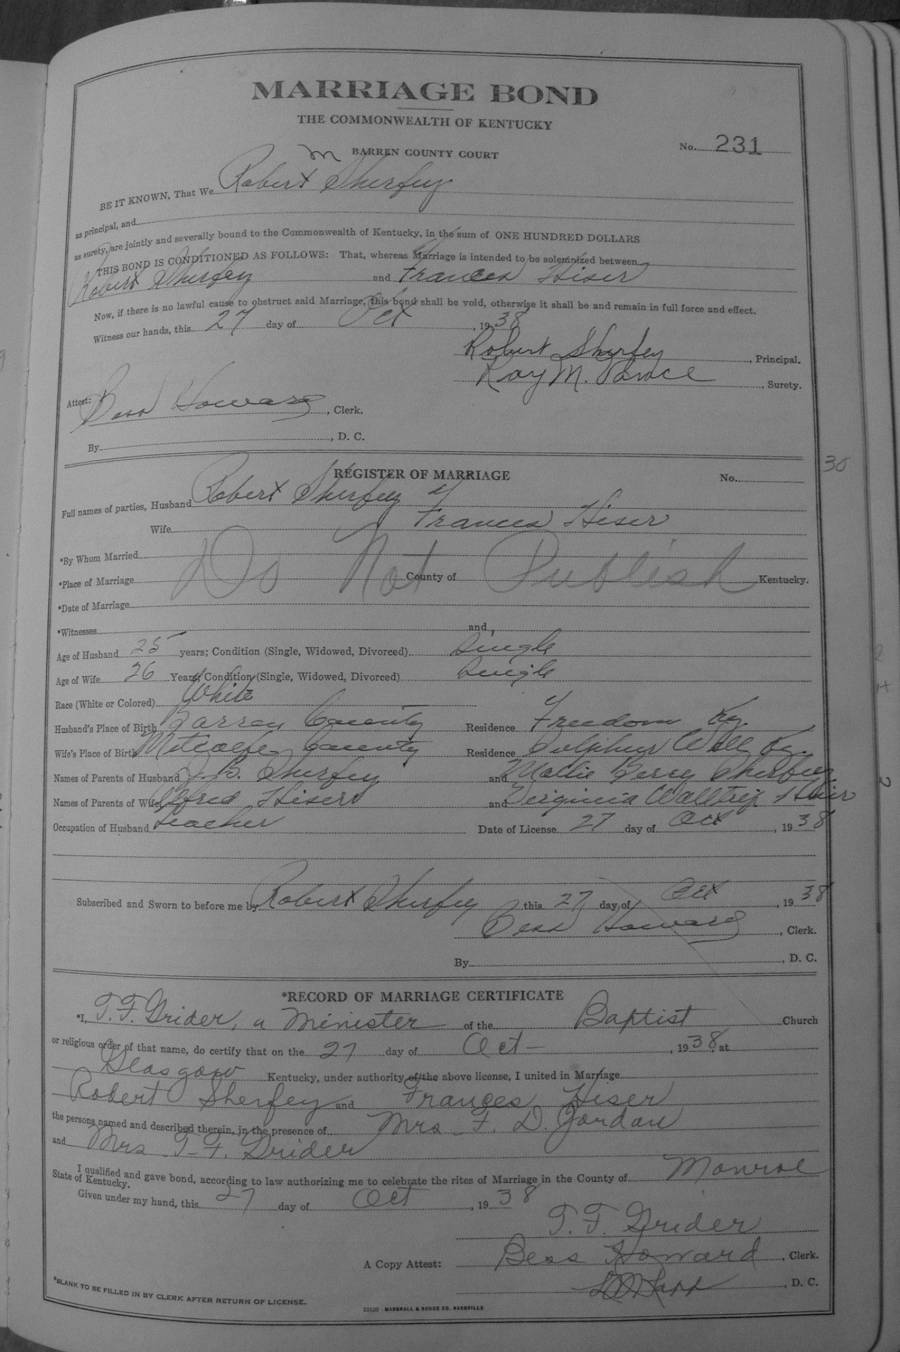 MARRIAGE BOND
THE COMMONWEALTH OF KENTUCKY
BARREN COUNTY COURT
No. 231
BE IT KNOWN, That We Robert Sherfey
as principal, and
as surety, are jointly and severally bound to the Commonwealth of Kentucky, in the sum of ONE HUNDRED DOLLARS
THIS BOND IS CONDITIONED AS FOLLOWS: That, whereas Marriage is intended to be solemnized between
Robert Sherfey and Frances Hiser
Now, if there is no lawful cause to obstruct said Marriage, this bond shall be void, otherwise it shall be and remain in full force and effect.
Witness our hands, this 27 day of Oct, 1938
Robert Sherfey, Principal.
Ray M., Surety.
Attest:
Bess Howard, Clerk.
By, D. C.
REGISTER OF MARRIAGE No.
30
Full names of parties, Husband Robert Sherfey &
Wife Frances Hiser
*By Whom Married
*Place of Marriage County of Kentucky.
Do Not Publish
*Date of Marriage
*Witnesses and
Age of Husband 25 years; Condition (Single, Widowed, Divorced) Single
Age of Wife 26 Years; Condition (Single, Widowed, Divorced) Single
Race (White or Colored) White
Husband's Place of Birth Barren County Residence Freedom Ky.
Wife's Place of Birth Metcalfe County Residence Sulphur Well Ky.
Names of Parents of Husband J. B. Sherfey and Mollie Berry Sherfey
Names of Parents of Wife Alfred Hiser and Virginia Waltrip Hiser
Occupation of Husband Teacher Date of License 27 day of Oct, 1938
Subscribed and Sworn to before me by Robert Sherfey this 27 day of Oct, 1938
Bess Howard, Clerk.
By, D. C.
*RECORD OF MARRIAGE CERTIFICATE
*I, T. F. Grider, a Minister of the Baptist Church
or religious order of that name, do certify that on the 27 day of Oct-, 1938, at
Glasgow Kentucky, under authority of the above license, I united in Marriage
Robert Sherfey and Frances Hiser
the persons named and described therein, in the presence of Mrs. F. D. Jordan
and Mrs T. F. Grider
I qualified and gave bond, according to law authorizing me to celebrate the rites of Marriage in the County of Monroe
State of Kentucky.
Given under my hand, this 27 day of Oct, 1938
T. F. Grider
A Copy Attest: Bess Howard, Clerk.
, D. C.
*BLANK TO BE FILLED IN BY CLERK AFTER RETURN OF LICENSE.
MARSHALL & BRUCE CO. NASHVILLE